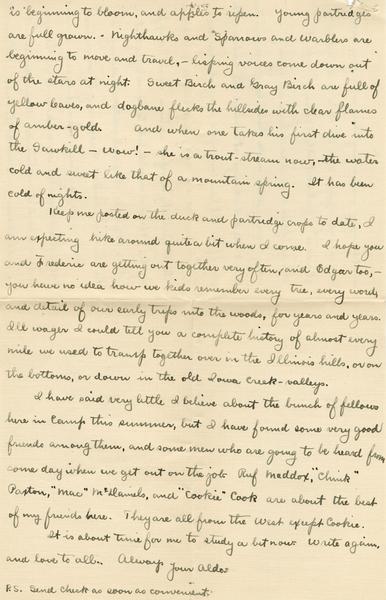 is beginning to bloom, and apples to ripen. Young partridges
are full grown. - Nighthawks and Sparrows and Warblers are
beginning to move and travel, - lisping voices come down out
of the stars at night. Sweet Birch and Gray Birch are full of
yellow leaves, and dogbane flecks the hillsides with clear flames
of amber-gold. And when one takes his first dive into
the Sawkill - wow! - she is a trout-stream now, - the water
cold and sweet like that of a mountain spring. It has been
cold of nights.
Keep me posted on the duck and partridge crops to date, I
am expecting hike around quite a bit when I come. I hope you
and Frederic are getting out together very often, and Edgar too, -
you have no idea how we kids remember every tree, every word,
and detail of our early trips into the woods, for years and years.
I'll wager I could tell you a complete history of almost every
mile we used to tramp together over in the Illinois hills, or on
the bottoms, or down in the old Iowa Creek-valleys.
I have said very little I believe about the bunch of fellows
here in Camp this summer, but I have found some very good
friends among them, and some men who are going to be heard from
some day when we get out on the job. Ruf Maddox, "Chink"
Paxton, "Mac" McDaniels, and "Cookie" Cook are about the best
of my friends here. They are all from the West except Cookie.
It is about time for me to study a bit now. Write again,
and love to all. Always Your Aldo.
P.S. Send check as soon as convenient.